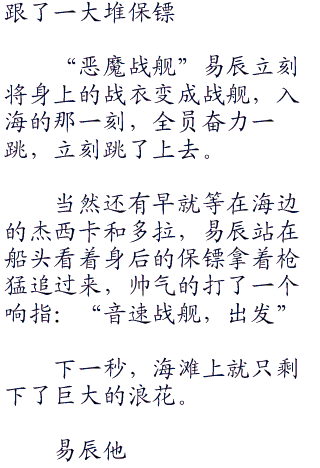 跟了一大堆保镖
“恶魔战舰”易辰立刻
将身上的战衣变成战舰，入
海的那一刻，全员奋力一
跳，立刻跳了上去。
当然还有早就等在海边
的杰西卡和多拉，易辰站在
船头看着身后的保镖拿着枪
猛追过来，帅气的打了一个
响指：“音速战舰，出发”
下一秒，海滩上就只剩
下了巨大的浪花。
易辰他